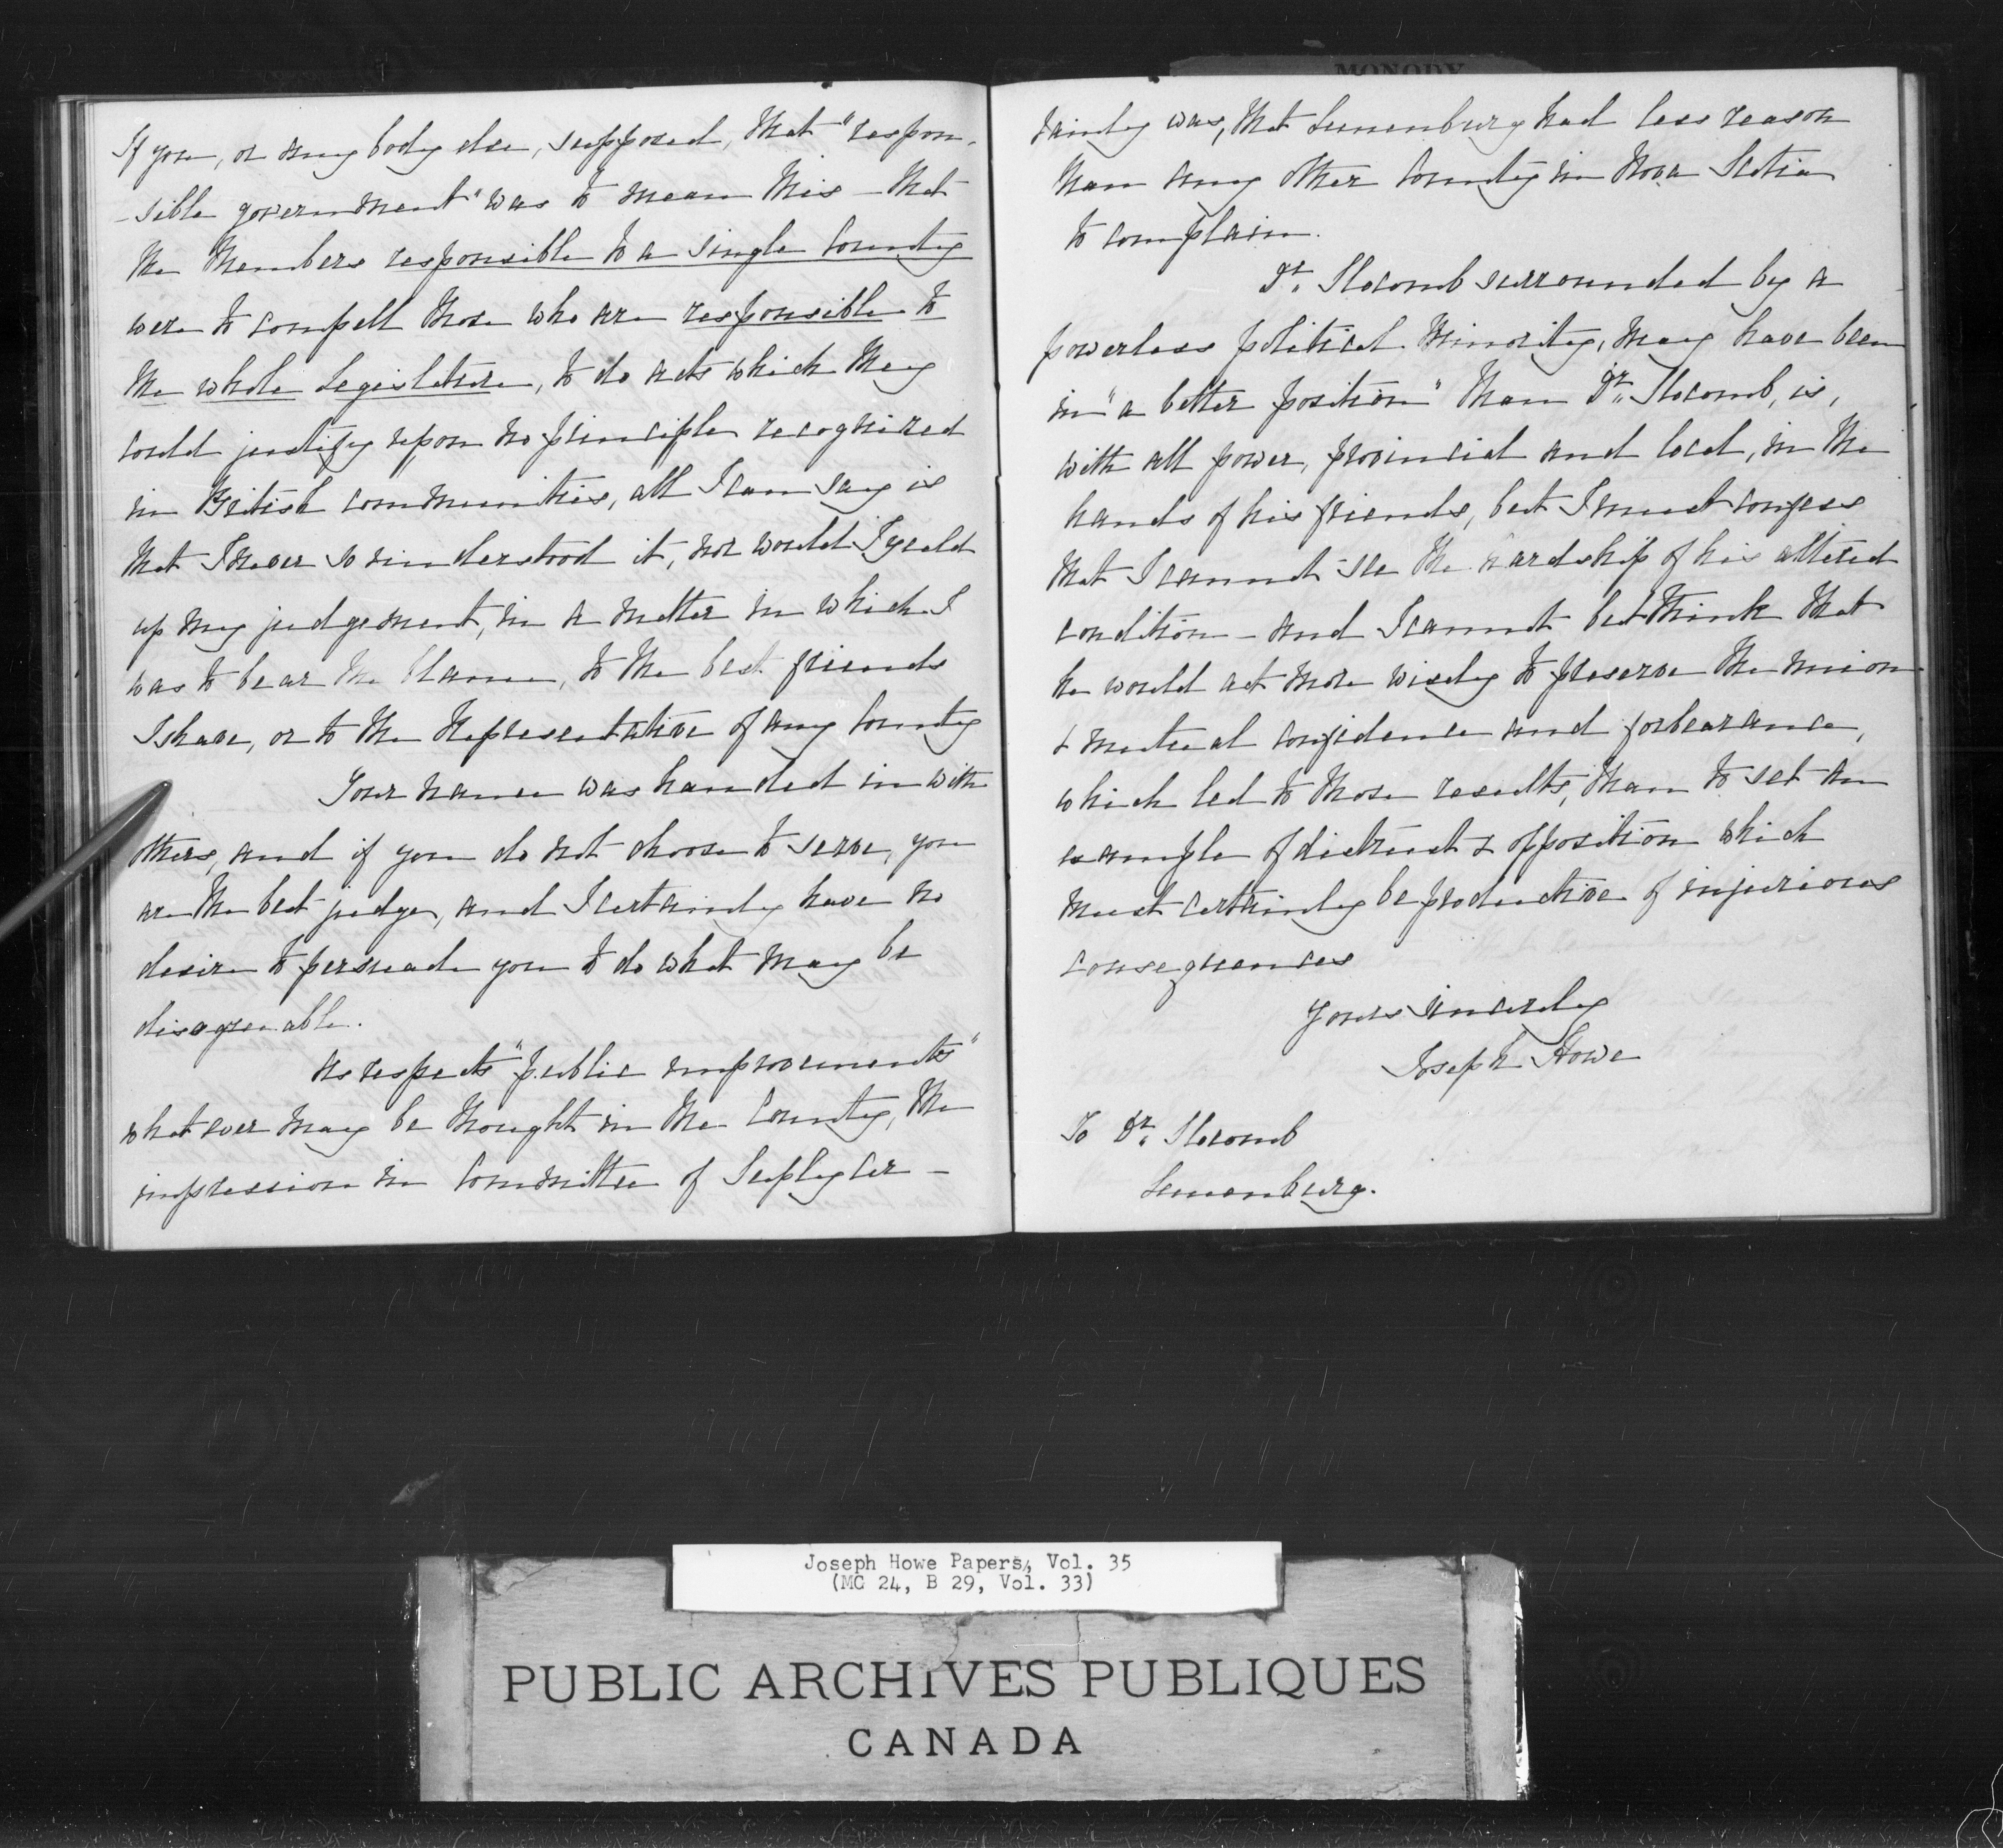 If you, or any body else, supposed, that "respon-
-sible government" was to mean this - that
the Members responsible to a single County
were to compell those who are responsible to
the whole Legislature, to do acts which they
could justify upon no principle recognized
in British communities, all I can say is
that I never so understood it, nor would I yield
up my judgement, in a matter in which I
was to bear the blame, to the best friends
I have, or to the Representative of any County
Your name was handed in with
others, and if you do not choose to serve, you
are the best judge, and I certainly have no
desire to persuade you to do what may be
disagreeable.
As respects "public improvements"
whatever may be thought in the County, the
impression in Committee of Supply cer-
tainly was, that Lunenburg had less reason
than any other County in Nova Scotia
to complain.
Dr. Slocomb surrounded by a
powerless political minority, may have been
in "a better position" than Dr. Slocomb, is,
with all power, provincial and local, in the
hands of his friends, but I must confess
that I cannot see the hardship of his altered
condition - and I cannot but think that
he would act more wisely to preserve the union
& mutual confidence and forbearance,
which led to those results, than to set an
example of distrust & opposition which
must certainly be productive of injurious
consequences
Yours sincerely
Joseph Howe
To Dr. Slocomb
Lunenburg.
MONODY
Joseph Howe Papers, Vol. 35
(MG 24, B 29, Vol. 33)
PUBLIC ARCHIVES PUBLIQUES
CANADA